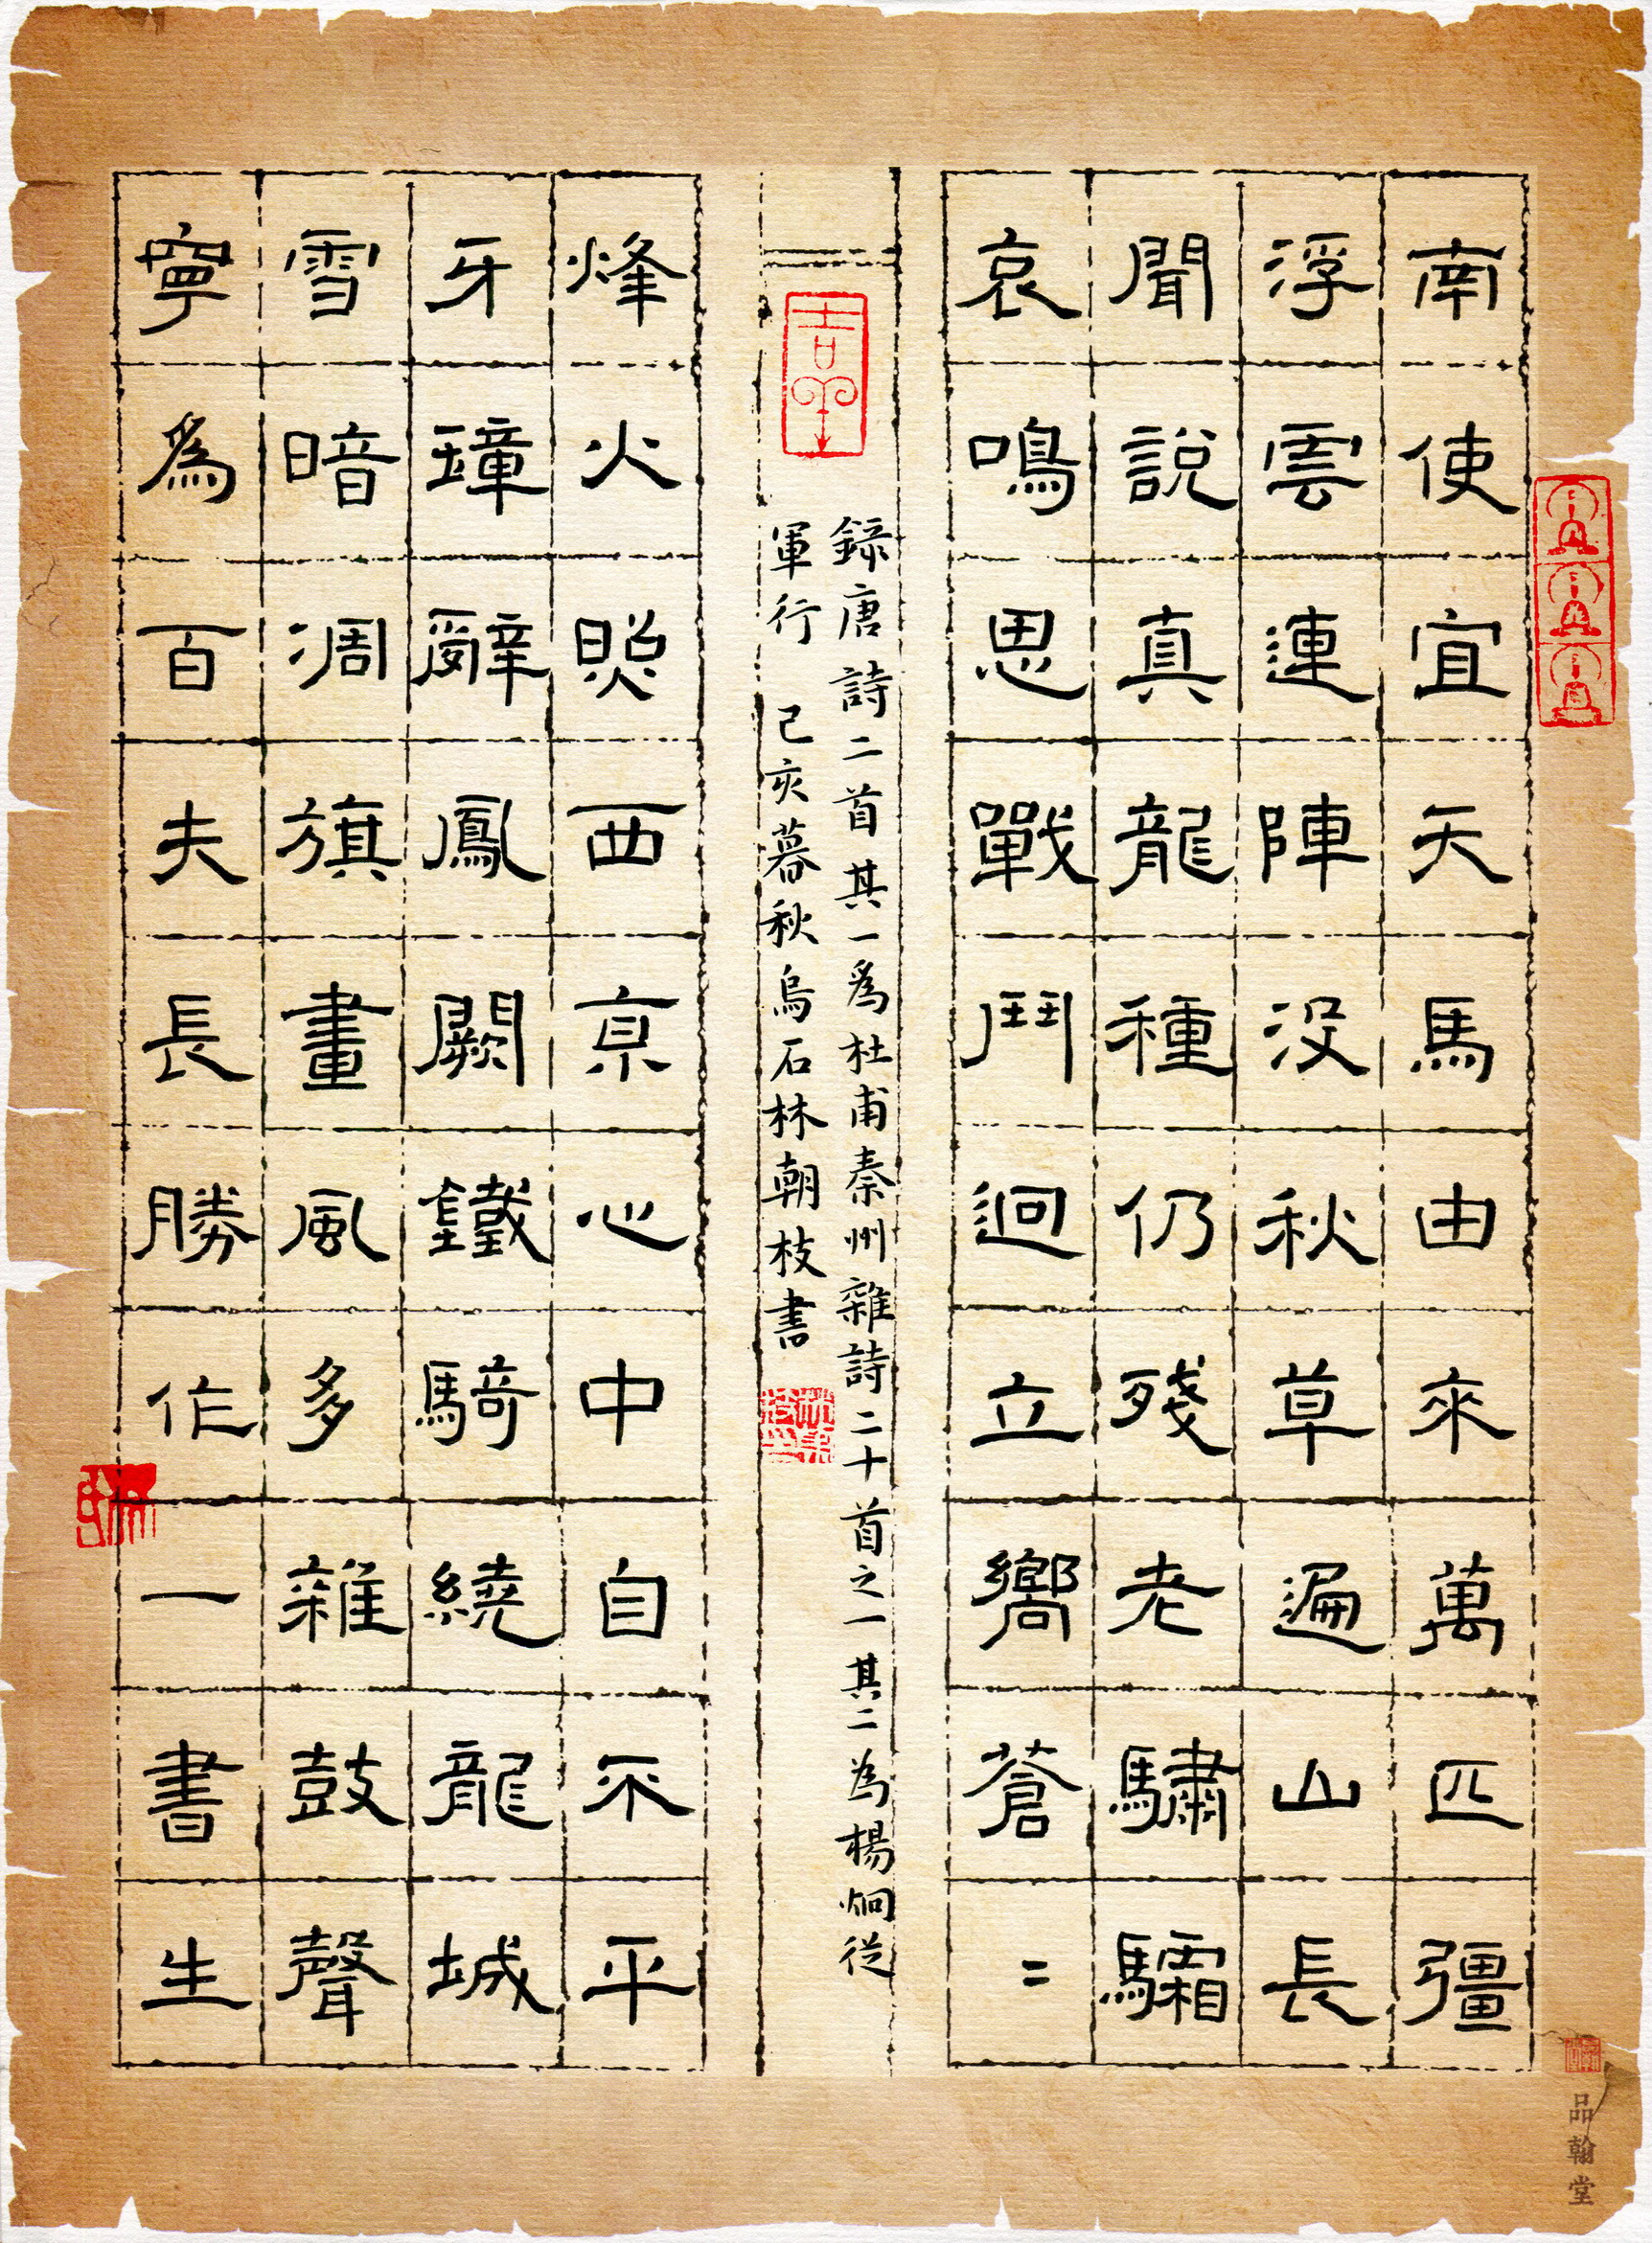 南使宜天馬由來萬匹彊
浮雲連陣没秋草遍山長
聞説真龍種仍殘老驌驦
哀鳴思戰鬥迥立嚮蒼〻
録唐詩二首其一為杜甫秦州雜詩二十首之一其二為楊炯從
軍行 己亥暮秋烏石林朝枝書
烽火照西京心中自不平
牙璋辭鳳闕鐵騎繞龍城
雪暗凋旗畫風多雜鼓聲
寧為百夫長勝作一書生
吉
品翰堂